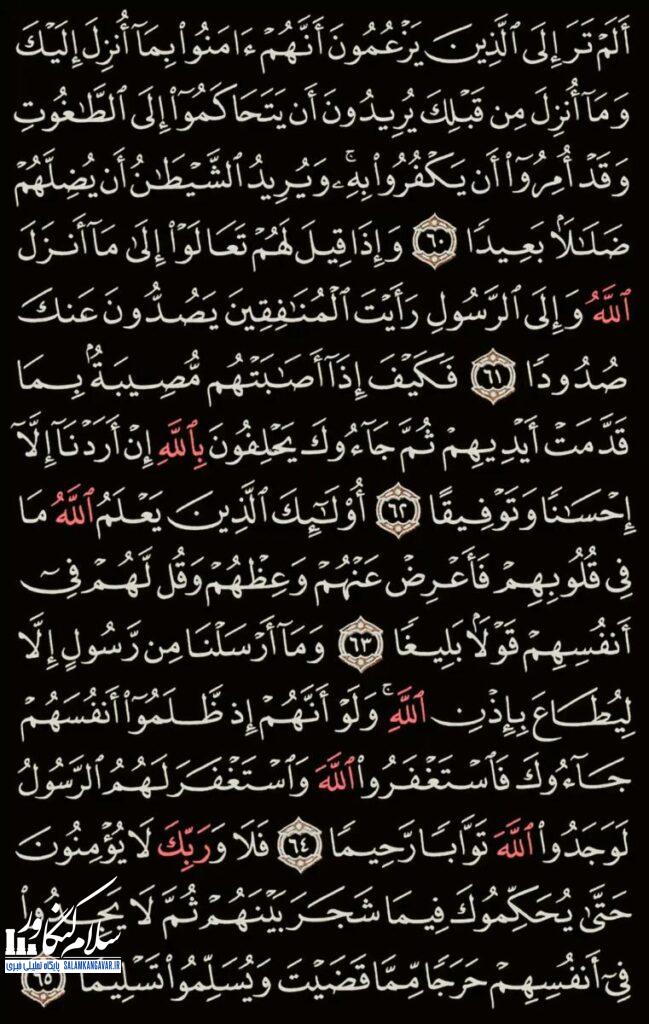 أَلَمْ تَرَ إِلَى ٱلَّذِينَ يَزْعُمُونَ أَنَّهُمْ ءَامَنُوا۟ بِمَآ أُنزِلَ إِلَيْكَ
وَمَآ أُنزِلَ مِن قَبْلِكَ يُرِيدُونَ أَن يَتَحَاكَمُوٓا۟ إِلَى ٱلطَّٰغُوتِ
وَقَدْ أُمِرُوٓا۟ أَن يَكْفُرُوا۟ بِهِۦۚ وَيُرِيدُ ٱلشَّيْطَٰنُ أَن يُضِلَّهُمْ
ضَلَٰلًۢا بَعِيدًا ٦٠ وَإِذَا قِيلَ لَهُمْ تَعَالَوْا۟ إِلَىٰ مَآ أَنزَلَ
ٱللَّهُ وَإِلَى ٱلرَّسُولِ رَأَيْتَ ٱلْمُنَٰفِقِينَ يَصُدُّونَ عَنكَ
صُدُودًا ٦١ فَكَيْفَ إِذَآ أَصَٰبَتْهُم مُّصِيبَةٌۢ بِمَا
قَدَّمَتْ أَيْدِيهِمْ ثُمَّ جَآءُوكَ يَحْلِفُونَ بِٱللَّهِ إِنْ أَرَدْنَآ إِلَّآ
إِحْسَٰنًا وَتَوْفِيقًا ٦٢ أُو۟لَٰٓئِكَ ٱلَّذِينَ يَعْلَمُ ٱللَّهُ مَا
فِى قُلُوبِهِمْ فَأَعْرِضْ عَنْهُمْ وَعِظْهُمْ وَقُل لَّهُمْ فِىٓ
أَنفُسِهِمْ قَوْلًۢا بَلِيغًا ٦٣ وَمَآ أَرْسَلْنَا مِن رَّسُولٍ إِلَّا
لِيُطَاعَ بِإِذْنِ ٱللَّهِۚ وَلَوْ أَنَّهُمْ إِذ ظَّلَمُوٓا۟ أَنفُسَهُمْ
جَآءُوكَ فَٱسْتَغْفَرُوا۟ ٱللَّهَ وَٱسْتَغْفَرَ لَهُمُ ٱلرَّسُولُ
لَوَجَدُوا۟ ٱللَّهَ تَوَّابًا رَّحِيمًا ٦٤ فَلَا وَرَبِّكَ لَا يُؤْمِنُونَ
حَتَّىٰ يُحَكِّمُوكَ فِيمَا شَجَرَ بَيْنَهُمْ ثُمَّ لَا يَجِدُوا۟
فِىٓ أَنفُسِهِمْ حَرَجًا مِّمَّا قَضَيْتَ وَيُسَلِّمُوا۟ تَسْلِيمًا ٦٥
سلام کنگاور
پایگاه تحلیلی خبری SALAMKANGAVAR.IR